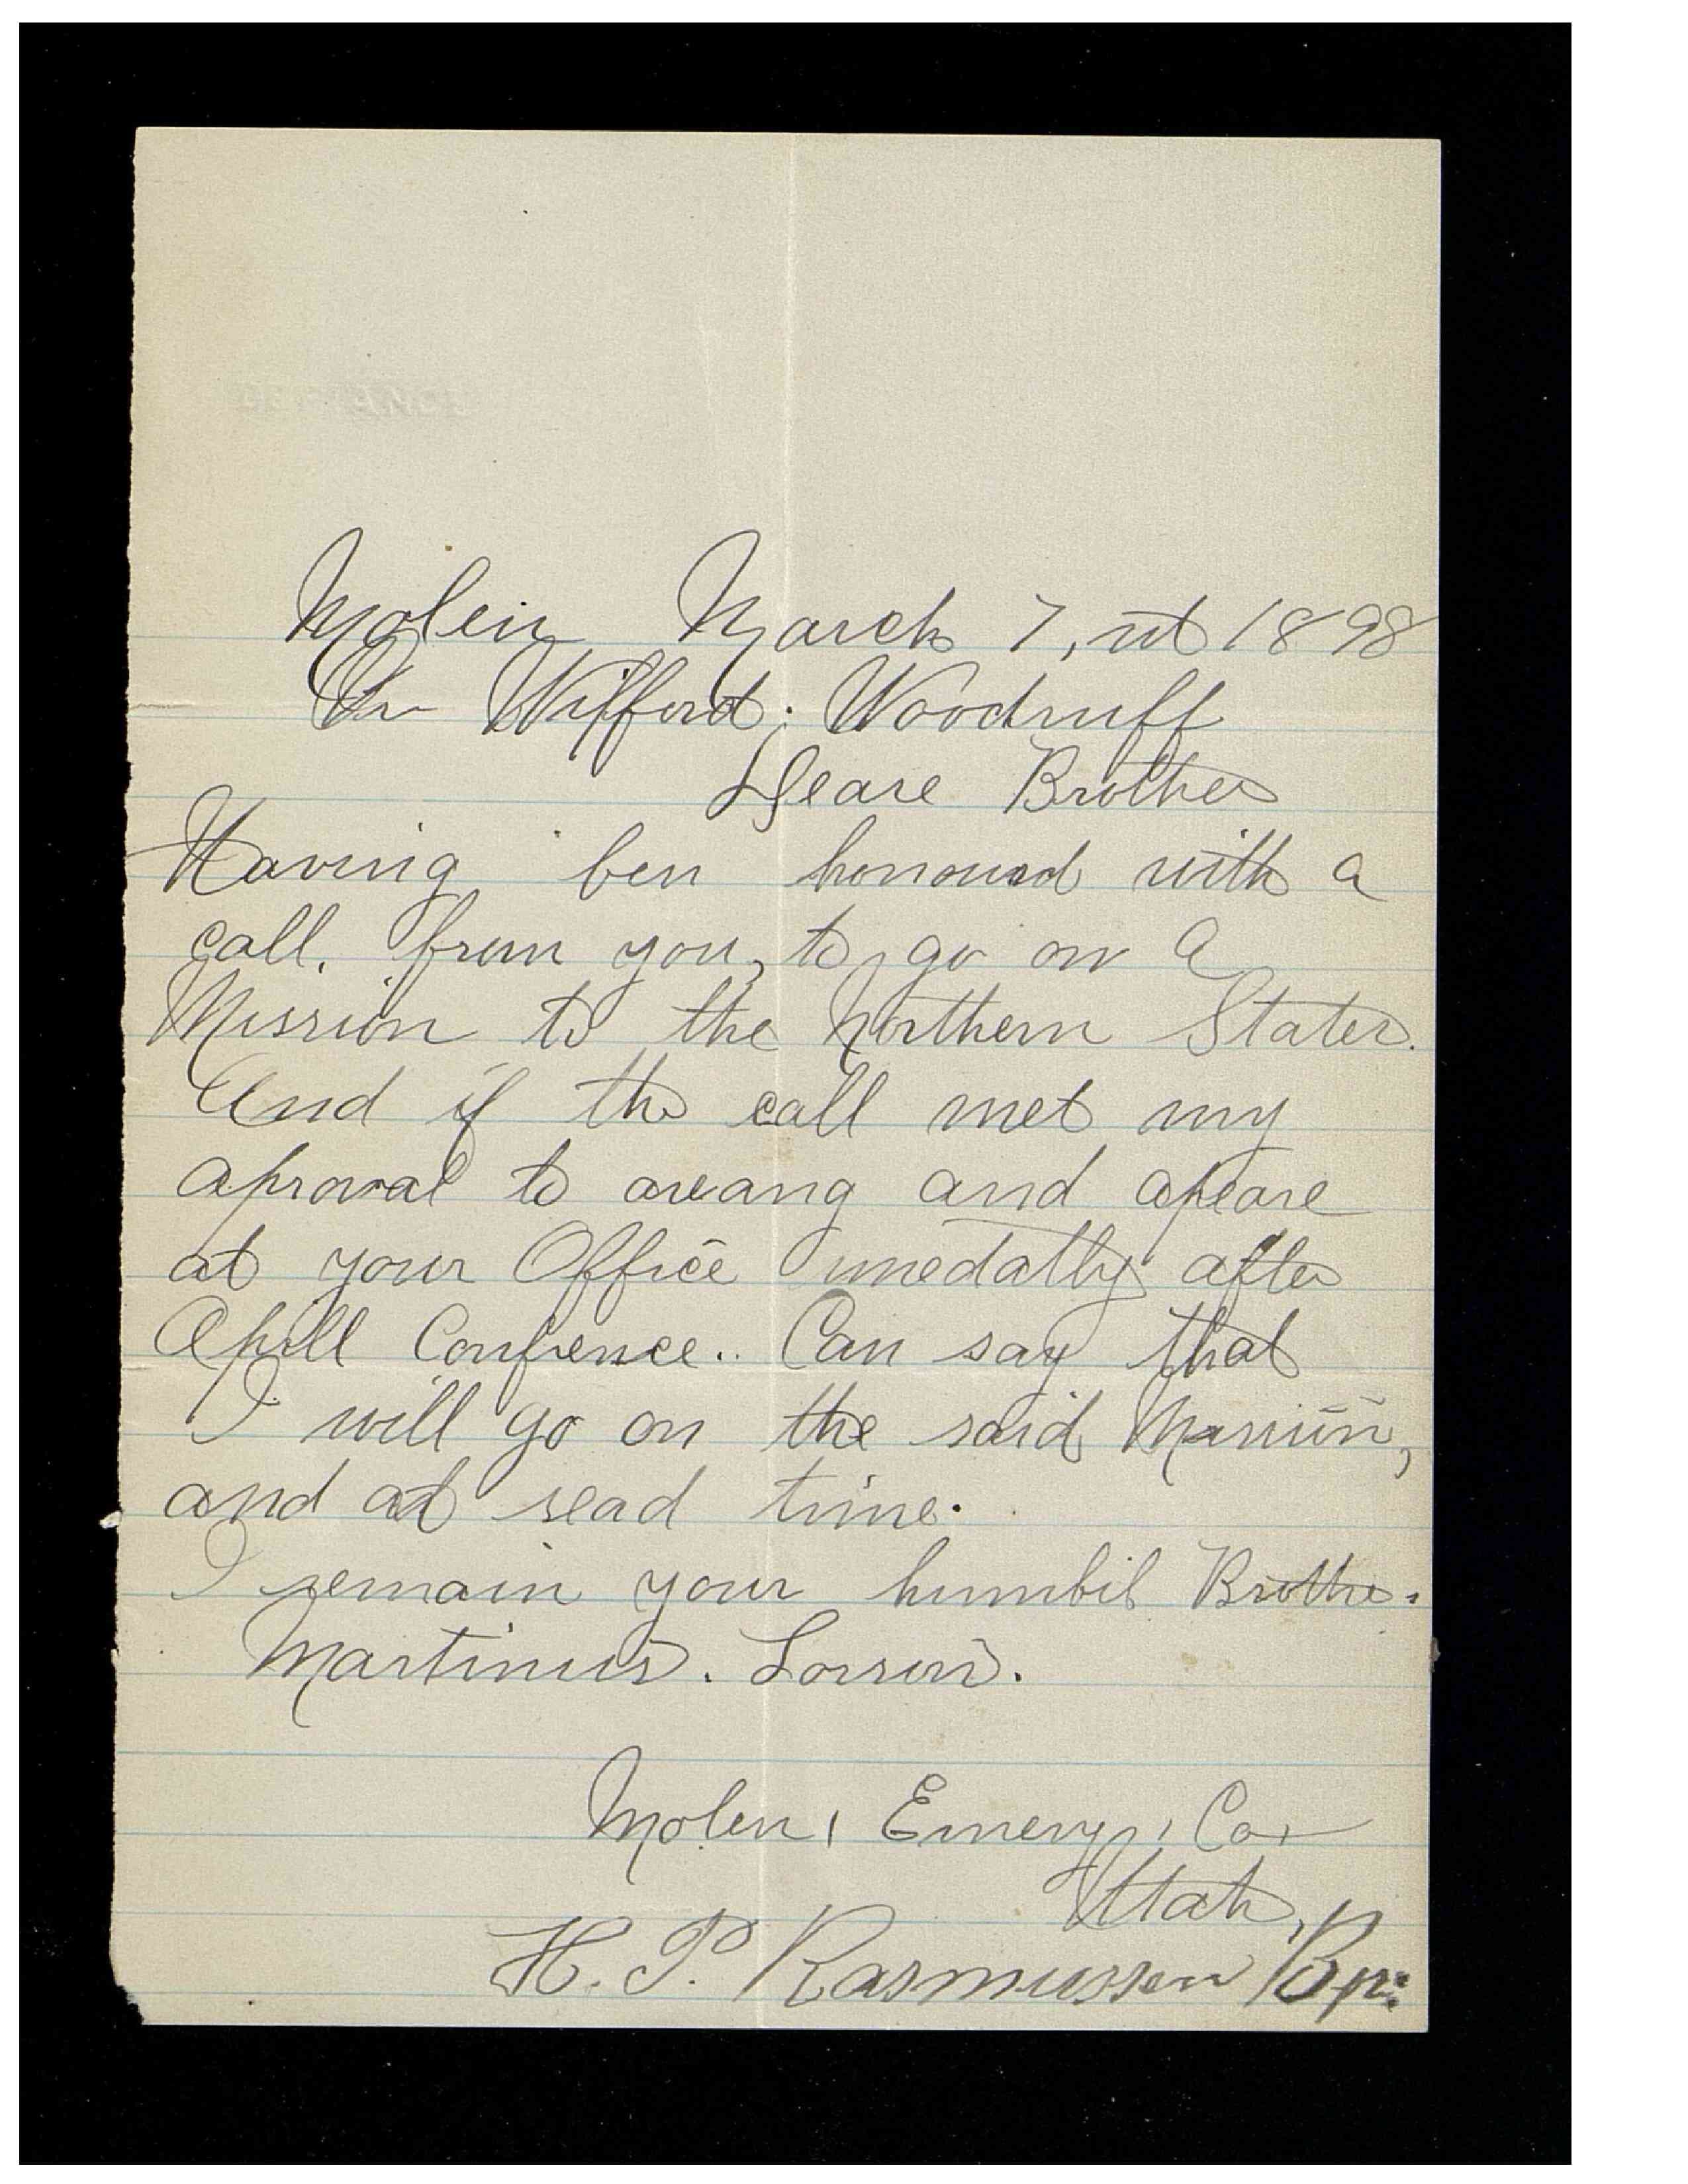 Molen March 7, 1898
Wifford; Woodruff
Deare Brother
Having ben honoured with a
call. from you, to go on a
Mission to the Northern States.
And if the call met my
aproval to arang and apeare
at your Office imedatly after
Aprill Confrence.. Can say that
I will go on the said Mission,
and at sead time.
I remain your humbil Brother.
Martinus. Larsen.
Molen, Emery, Co,
Utah,
H. P. Rasmussen Bp: